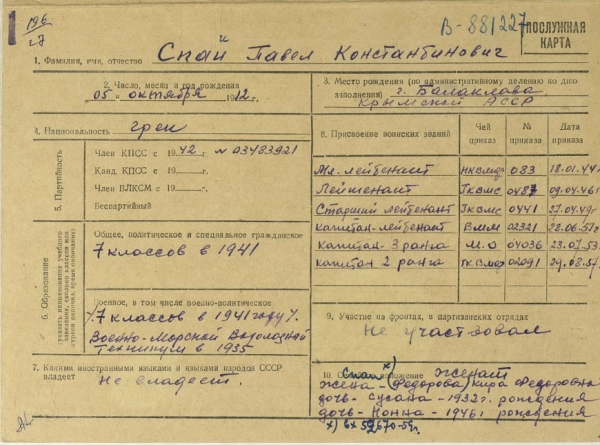 196
в-881227
ПОСЛУЖНАЯ
КАРТА
1. Фамилия, имя, отчество Спаи Павел Константинович
й
2. Число, месяц и год рождения
"05" октября 1912 г.
3. Место рождения (по административному делению ко дню
заполнения) г. Балаклава
Крымской АССР
4. Национальность грек
5. Партийность
Член КПСС с 1942 г. N 03483921
Канд. КПСС с 19 г.
Член ВЛКСМ с 19 г.
Беспартийный
6. Образование
указать наименование учебного
Общее, политическое и специальное гражданское
7 классов в 1941
Военное, в том числе военно-политическое
7 классов в 1941 году
Военно-Морской Водолазный
Техникум в 1935
7. Какими иностранными языками и языками народов СССР
владеет Не владеет.
8. Присвоение воинских званий
Чей приказ
№ приказа
Дата приказа
Мл. лейтенант НКВМФ 083 18.01.44
Лейтенант ГКВМС 0487 09.04.46г
Старший лейтенант ГКВМС 0441 27.04.49г
капитан-лейтенант ВММ 02321 22.06.52г
Капитан-3 ранга М.О 04036 23.07.53
капитан 2 ранга ГКВМФ 02091 29.08.57г
9. Участие на фронтах, в партизанских отрядах
Не участвовал
10. положение женат
Спаи х)
жена - (Федорова) Кира Федоровна
дочь - Сусана - 1932 г. рождения
дочь - Нонна - 1946 г рождения
х) вх 592670-59г.